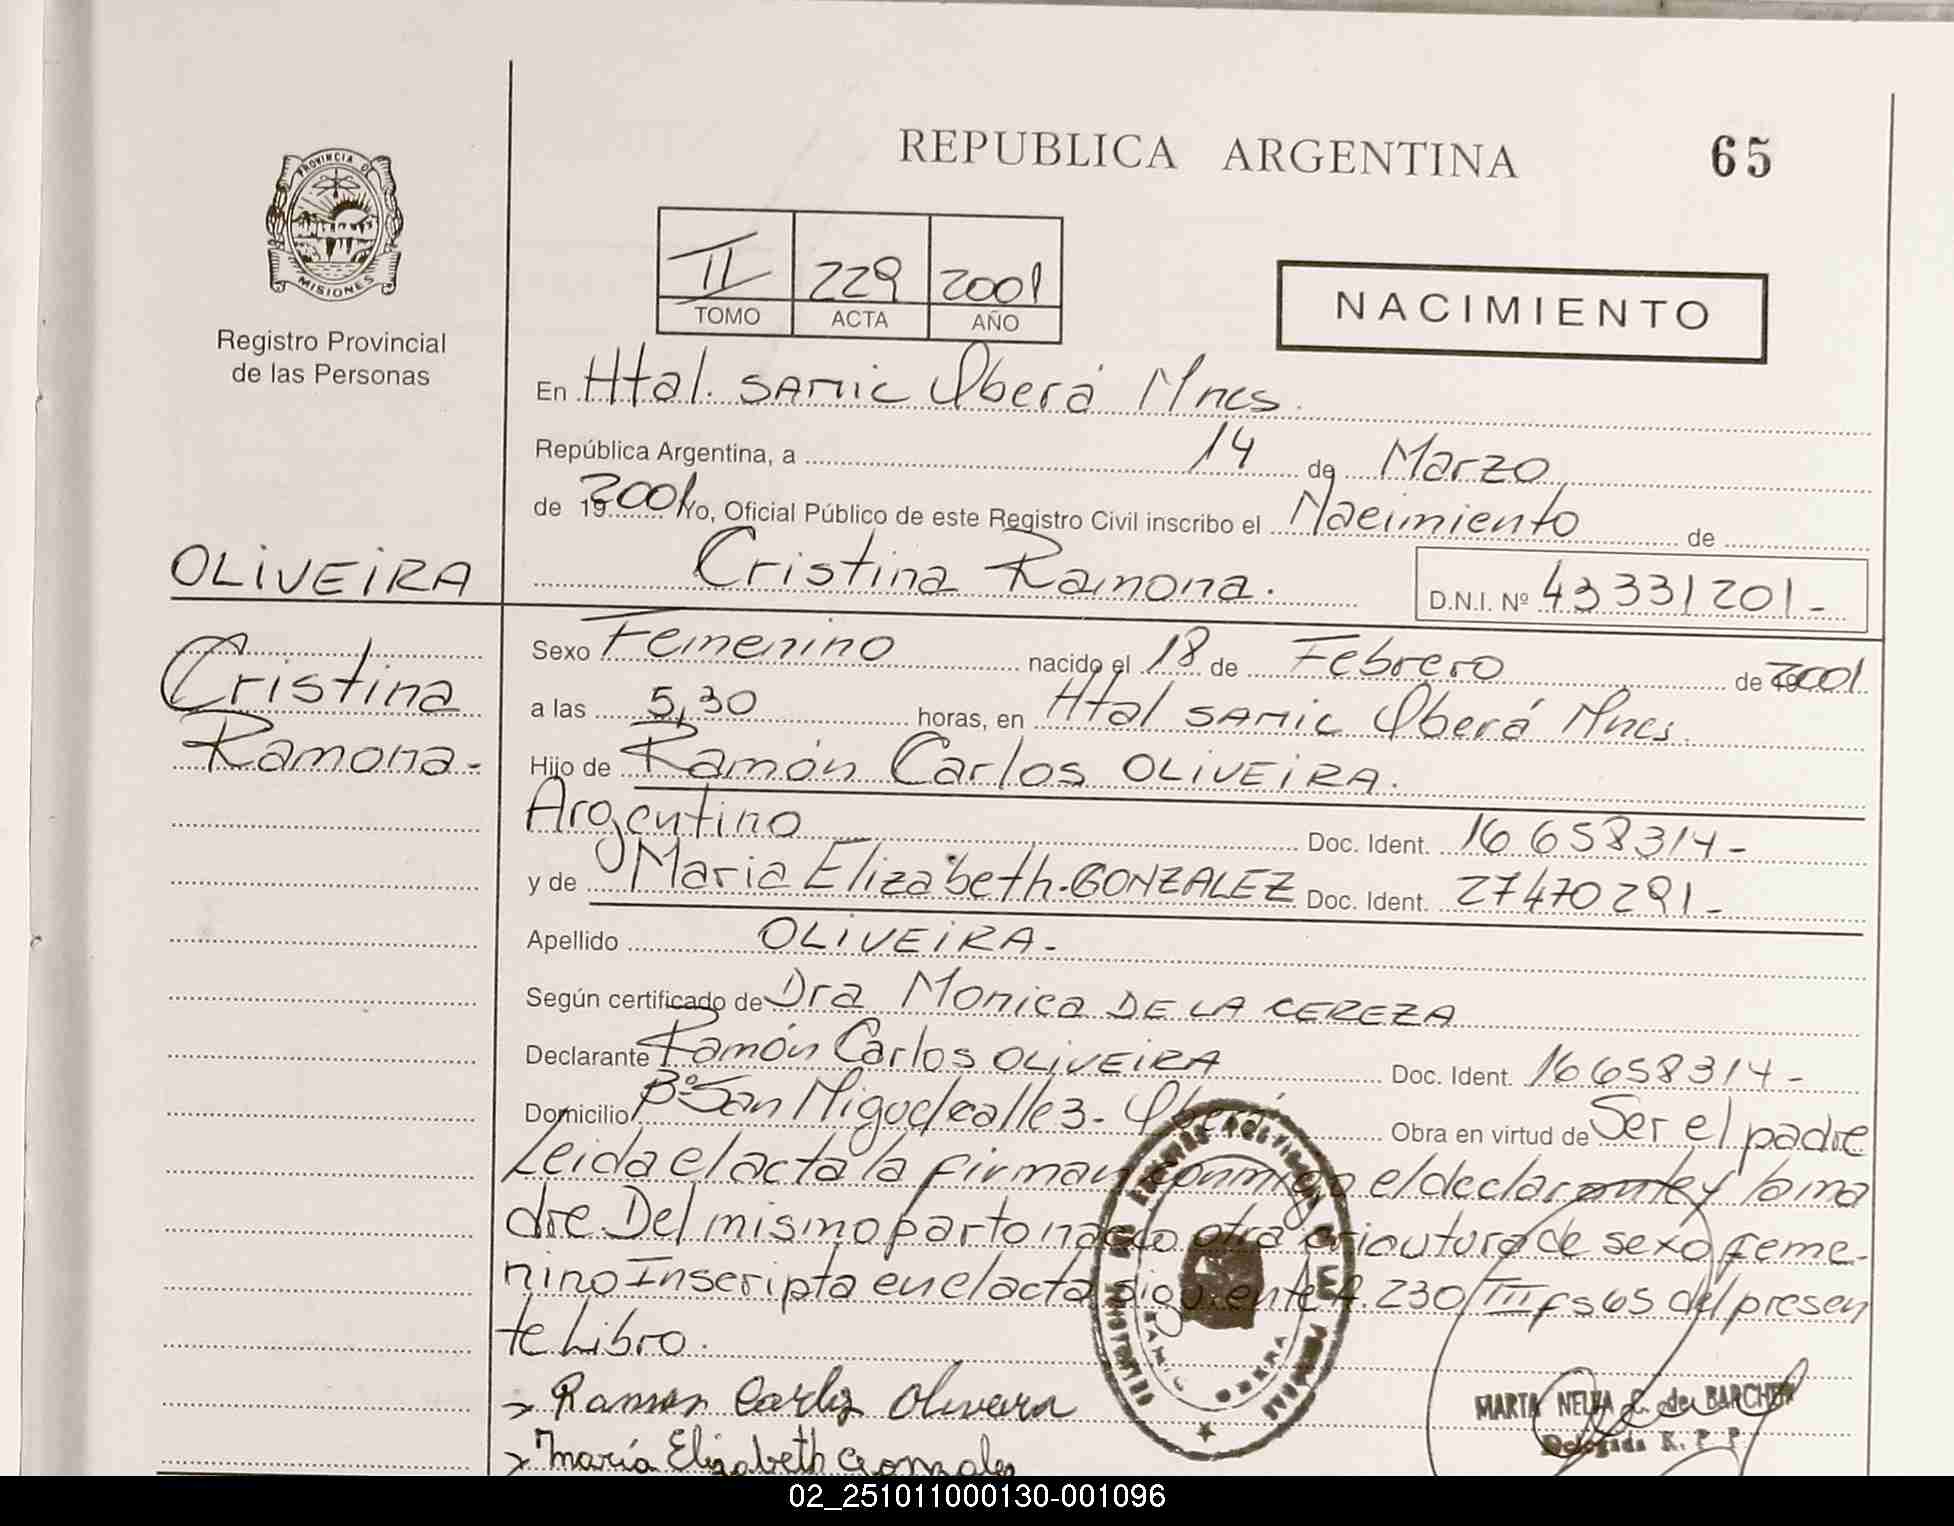 REPUBLICA ARGENTINA
65
PROVINCIA DE
MISIONES
Registro Provincial
de las Personas
II 229 2001
TOMO ACTA AÑO
NACIMIENTO
En Htal. SAMIC Oberá Mnes.
República Argentina, a 14 de Marzo
de 19 2001 Yo, Oficial Público de este Registro Civil inscribo el Nacimiento de
OLIVEIRA
Cristina Ramona.
D.N.I. Nº 43331201-
Cristina
Ramona-
Sexo Femenino nacido el 18 de Febrero de 2001
a las 5,30 horas, en Htal SAMIC Oberá Mnes.
Hijo de Ramón Carlos OLIVEIRA.
Argentino Doc. Ident. 16658314-
y de Maria Elizabeth.GONZALEZ Doc. Ident. 27470291-
Apellido OLIVEIRA.-
Según certificado de Dra Monica DE LA CEREZA
Declarante Ramón Carlos OLIVEIRA Doc. Ident. 16658314-
Domicilio Bº San Miguel calle 3- Oberá Obra en virtud de Ser el padre
Leida el acta la firman conmigo el declarante y la ma
dre Del mismo parto nacio otra criautura de sexo feme-
nino Inscripta en el acta siguiente A. 230/III fs 65 del presen
te Libro.
Ramon Carlos Oliveira
María Elizabeth Gonzalez
SAMIC OBERA
MARTA NELVA C. de BARCHUK
Delegada R. P. P.
02_251011000130-001096